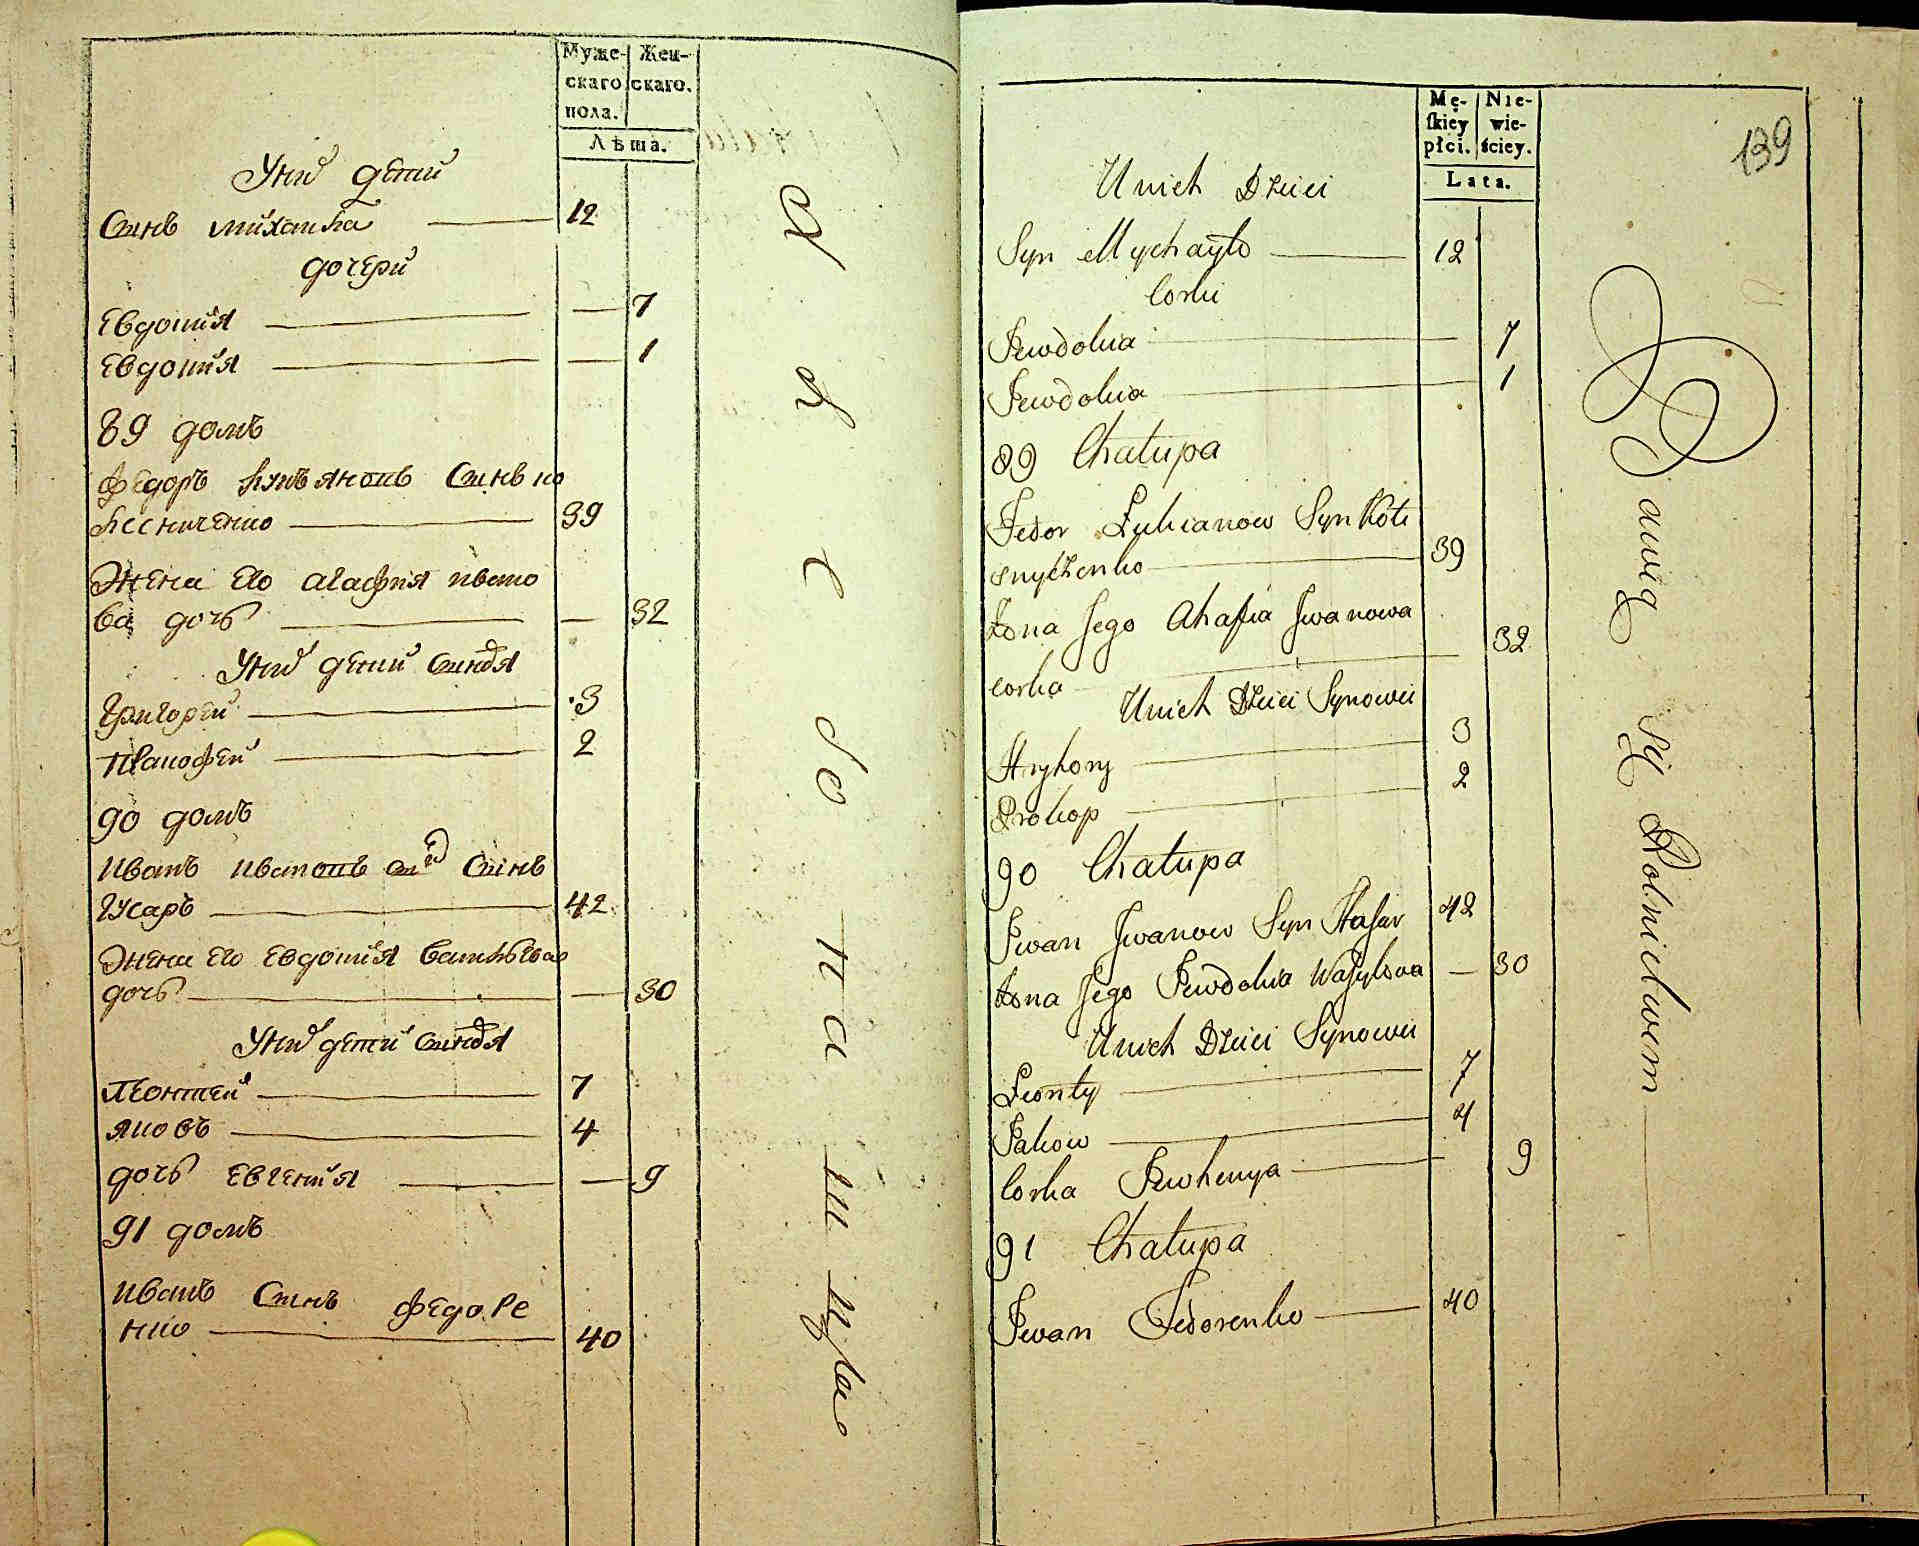 Муже-
скаго
пола.
Жен-
скаго.
Лѣта.
У нихъ дети
Синъ михаика 12
дочери
Евдокия 7
Евдокия 1
89 домъ
Федоръ лукъяновъ Синъ ко
лесниченко 39
Жена его агафия ивано
ва дочь 32
У нихъ дети синовя
Григорей 3
90 домъ
иванъ ивановъ Синъ
гусаръ 42
Жена его Евдокия василъева
дочь 30
У нихъ дети синовя
Леонтей 7
яковъ 4
дочь Евгения 9
91 домъ
иванъ Синъ федоре
нко 40
Mę-
skiey
płci.
Nie-
wie-
ściey.
Lata.
139
Unich Dzieci
Syn Mychayło 12
Corki
Jewdokia 7
Jewdokia 1
89 Chałupa
Fedor Łukianow Syn Kołe
snyczenko 39
żona Jego Ahafia Jwanowa
corka 32
Unich Dzieci Synowie
Hryhory 3
Prokop 2
90 Chałupa
Jwan Jwanow Syn Husar 42
żona Jego Jewdokia Wasylowa 30
Unich Dzieci Synowie
Leonty 7
Jakow 4
Corka Jewhenya 9
91 Chałupa
Jwan Fedorenko 40
Bawią się Rolnictwem